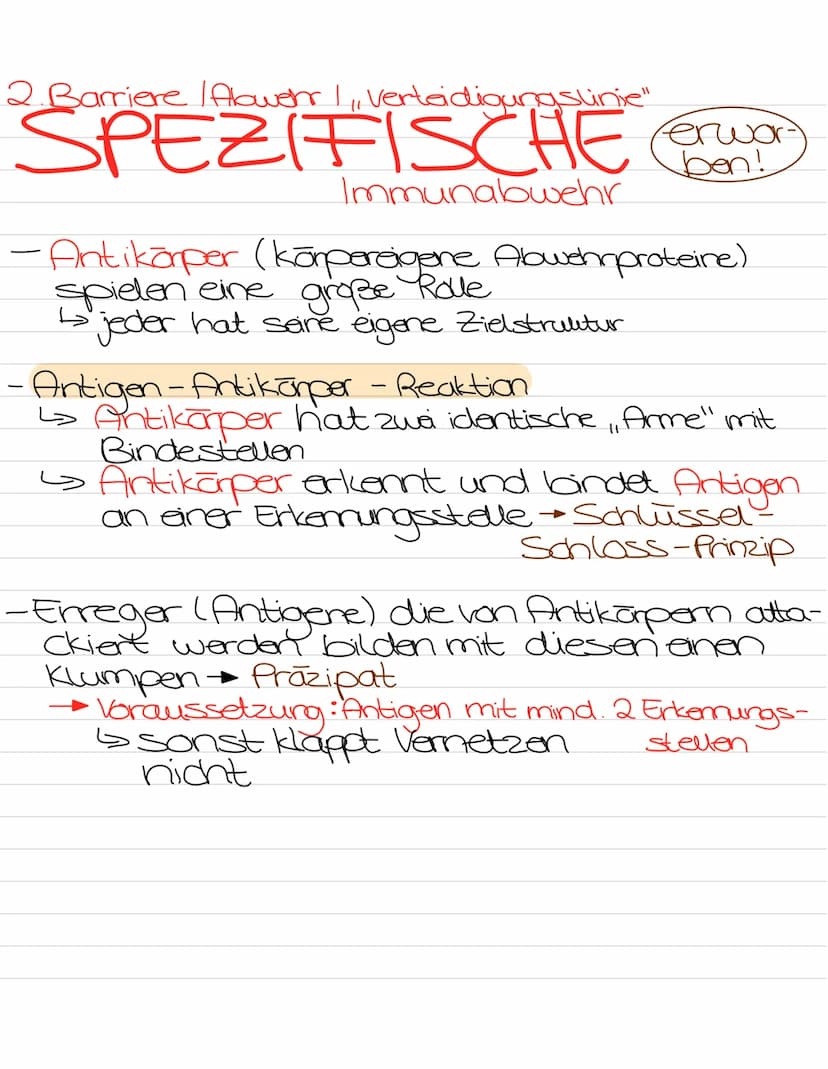 2. Barriere / Abwehr / „Verteidigungslinie"
SPEZIFISCHE
erwor-
ben!
Immunabwehr
- Antikörper (körpereigene Abwehrproteine)
spielen eine große Rolle
↳ jeder hat seine eigene Zielstruktur
- Antigen-Antikörper-Reaktion
↳ Antikörper hat zwei identische „Arme" mit
Bindestellen
↳ Antikörper erkennt und bindet Antigen
an einer Erkennungsstelle → Schlüssel-
Schloss-Prinzip
- Erreger (Antigene) die von Antikörpern atta-
ckiert werden bilden mit diesen einen
Klumpen → Präzipat
→ Voraussetzung: Antigen mit mind. 2 Erkennungs-
stellen
↳ sonst klappt Vernetzen
nicht